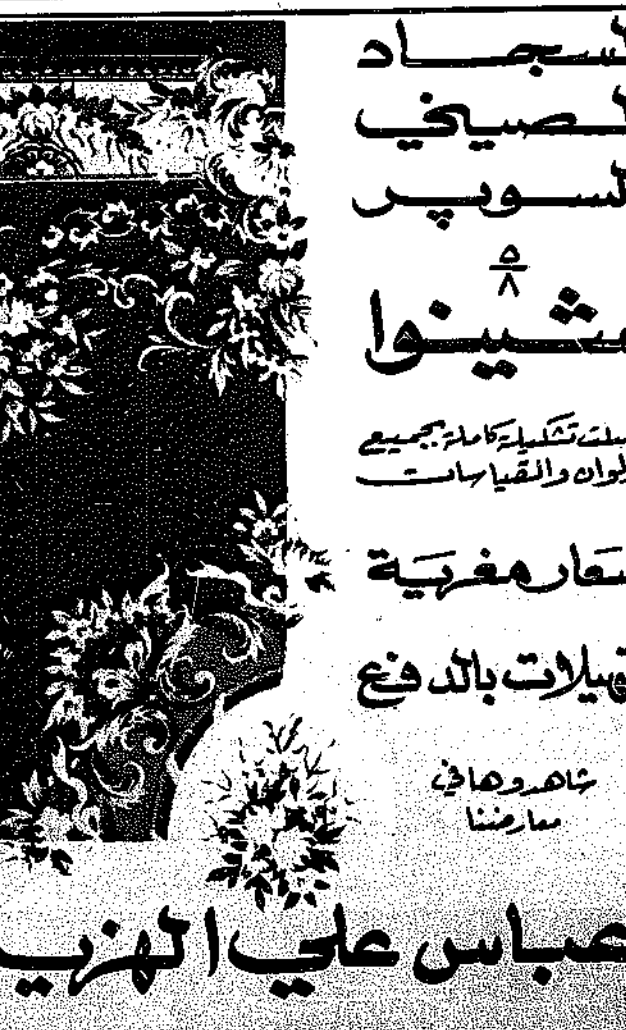 السجاد
الصيني
السوبر
٥
٨
شينوا
وصلت تشكيلة كاملة بجميع
الألوان والقياسات
أسعار مغرية
تسهيلات بالدفع
شاهدوها في
معارضنا
عباس علي الهزيم